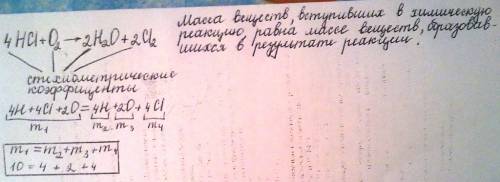 4HCl+O₂→2H₂O+2Cl₂
стехиометрические
коэффиценты
4H+4Cl+2O=4H+2O+4Cl
m₁ m₂ m₃ m₄
m₁=m₂+m₃+m₄
10=4+2+4
Масса веществ, вступивших в химическую
реакцию, равна массе веществ, образовав-
шихся в результате реакции.